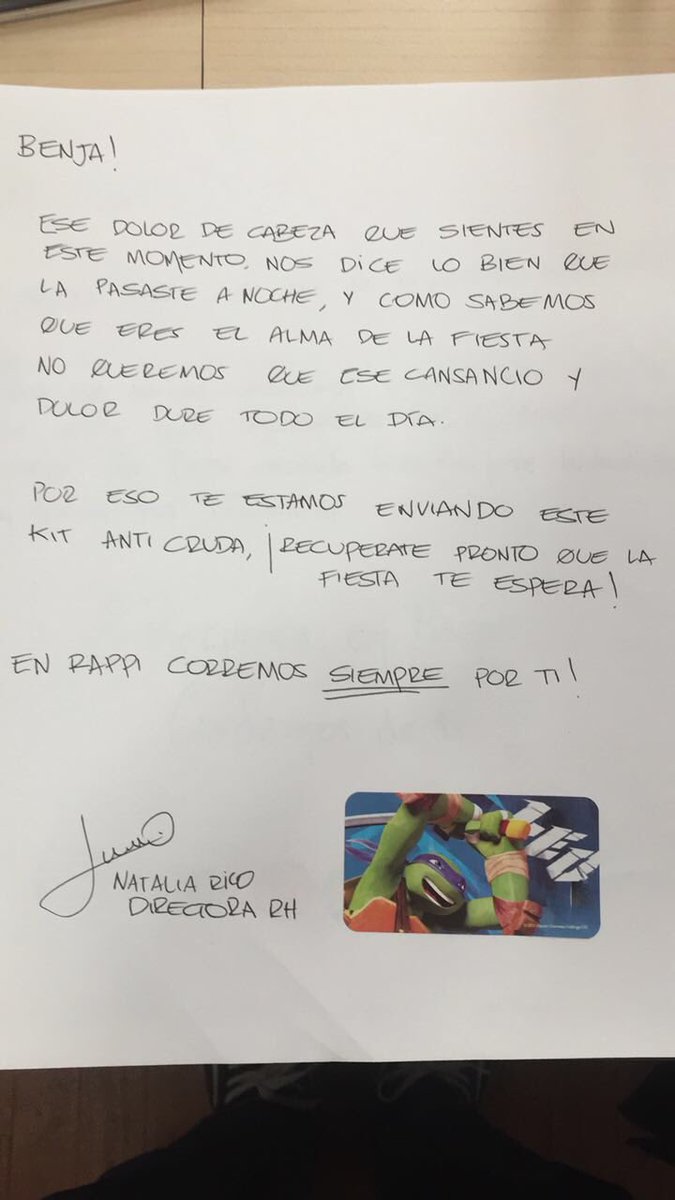 BENJA!
ESE DOLOR DE CABEZA QUE SIENTES EN
ESTE MOMENTO, NOS DICE LO BIEN QUE
LA PASASTE A NOCHE, Y COMO SABEMOS
QUE ERES EL ALMA DE LA FIESTA
NO QUEREMOS QUE ESE CANSANCIO Y
DOLOR DURE TODO EL DÍA.
POR ESO TE ESTAMOS ENVIANDO ESTE
KIT ANTI CRUDA, ¡RECUPERATE PRONTO QUE LA
FIESTA TE ESPERA!
EN RAPPI CORREMOS SIEMPRE POR TI!
NATALIA RICO
DIRECTORA RH